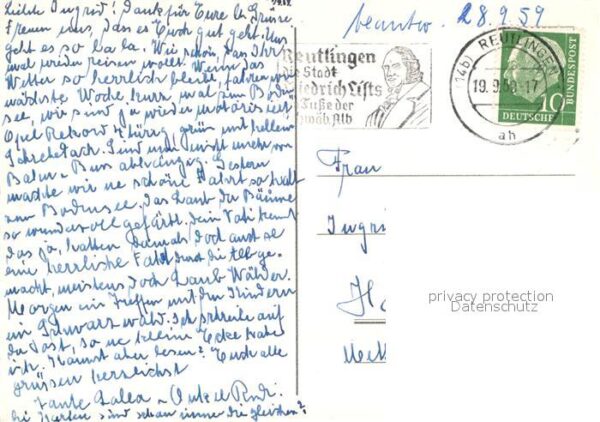 Liebe Ingrid! Dank für Eure lb. Grüsse
Freuen uns, dass es Euch gut geht. Uns
geht es so la la. Wie schön, das Ihr
mal wieder reisen wollt. Wenn das
Wetter so herrlich bleibt, fahren wir
nächste Woche kurz mal zum Boden
see, wir sind ja wieder motorisiert
Opel Rekord 4 türig grün mit hellem
Dach. Sind nun nicht mehr von
Bahn u. Bus abhängig. Gestern
machten wir ne schöne Fahrt so halb
zum Bodensee, das Laub der Bäume
so wundervoll gefärbt, dein Vati kennt
das ja, hatten damals doch auch so
eine herrliche Fahrt durch die Alb ge-
macht, meistens doch Laub Wälder.
Morgen ein Treffen mit den Kindern
im Schwarzwald. Ich schreibe auf
der Post, so ne kleine Ecke habe
ich. Kannst aber lesen? Euch alle
grüssen herzlichst
Tante Onkel Rudi.
Die Karten sind schon immer die gleichen?
beantw. 28.9.59
Reutlingen
die Stadt
Friedrich Lists
am Fuße der
Schwäb Alb
(14b) REUTLINGEN
19.9.59-17
ah
10
DEUTSCHE
BUNDESPOST
Frau
Ingri
H
Mett
privacy protection
Datenschutz